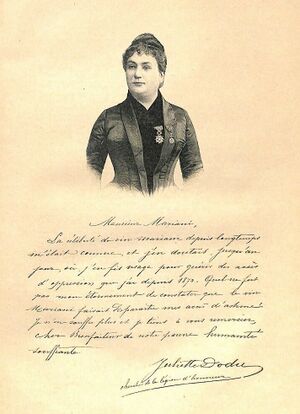 Monsieur Mariani,
La célébrité du vin Mariani depuis longtemps
m'était connue et j'en doutais jusqu'au
jour où j'en fis usage pour guérir des accès
d'oppression que j'ai depuis 1870. Quel ne fut
pas mon étonnement de constater que le vin
Mariani faisait disparaître mes accès d'asthme
Je n'en souffre plus et je tiens à vous remercier
cher bienfaiteur de notre pauvre humanité
souffrante.
Juliette Dodu
de la légion d'honneur